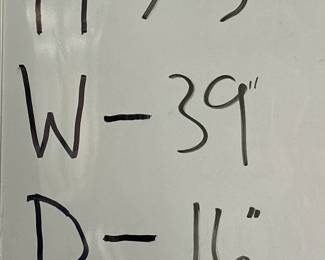 W - 39"
D - 16"